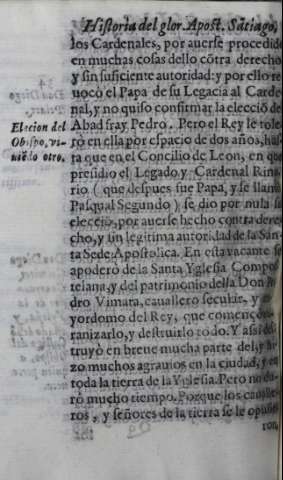 Historia del glor. Apost. Sãtiago,
los Cardenales, por auerse procedido
en muchas cosas dello cõtra derecho
y sin suficiente autoridad: y por ello re
uocò el Papa de su Legacia al Carde
nal, y no quiso confirmar la elecciõ de
Abad fray Pedro. Pero el Rey le tole
rò en ella por espacio de dos años, has
ta que en el Concilio de Leon, en que
presidio el Legado y Cardenal Rine
rio (que despues fue Papa, y se llamò
Pasqual Segundo) se dio por nula su
eleccio, por auerse hecho contra dere
cho, y sin legitima autoridad de la San
ta Sede Apostolica. En esta vacante se
apoderò de la Santa Yglesia Compos
telana, y del patrimonio della Don Pe
dro Vimara, cauallero secular, y
yordomo del Rey, que començò
ranizarlo, y destruirlo todo. Y assi des
truyò en breue mucha parte del, y hi
zo muchos agrauios en la ciudad, y en
toda la tierra de la Yglesia. Pero no du
rò mucho tiempo. Porque los caualle
ros, y señores de la tierra se le opusie
ron,
Elecion del
Obispo, vi-
niẽdo otro.